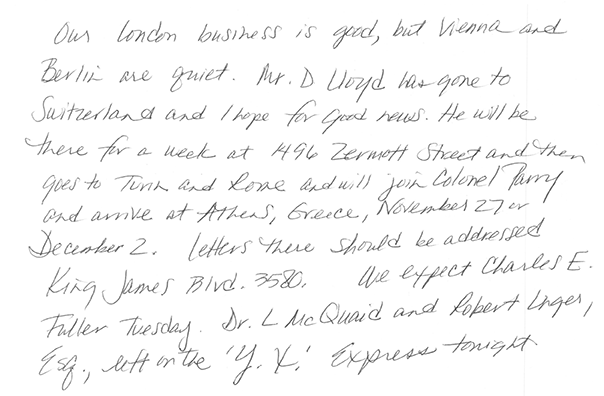 Our London business is good, but Vienna and
Berlin are quiet. Mr. D Lloyd has gone to
Switzerland and I hope for good news. He will be
there for a week at 1496 Zermott Street and then
goes to Turin and Rome and will join Colonel Parry
and arrive at Athens, Greece, November 27 or
December 2. Letters there should be addressed
King James Blvd. 3580. We expect Charles E.
Fuller Tuesday. Dr. L McQuaid and Robert Unger,
Esq., left on the 'Y.X.' Express tonight